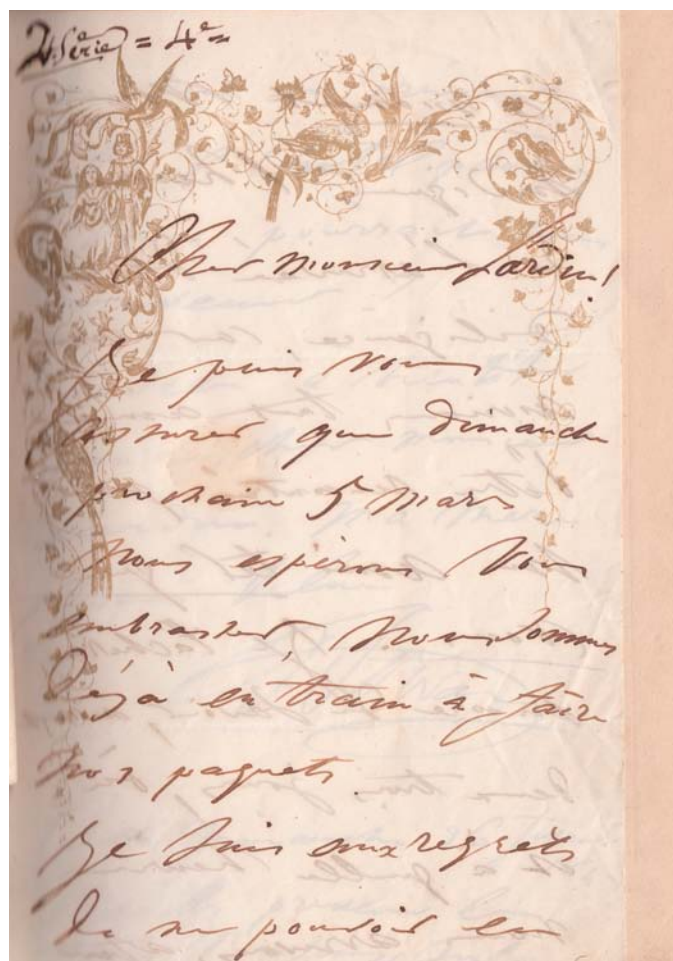 2.e Série = 4e =
Cher monsieur Jardin!
Je puis vous
assurer que dimanche
prochain 5 mars
nous espérons vous
embrasser, nous sommes
déjà en train à faire
nos paquets.
Je suis aux regrèts
de ne pouvoir en